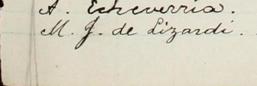 A. Echeverria.
M. J. de Lizardi.